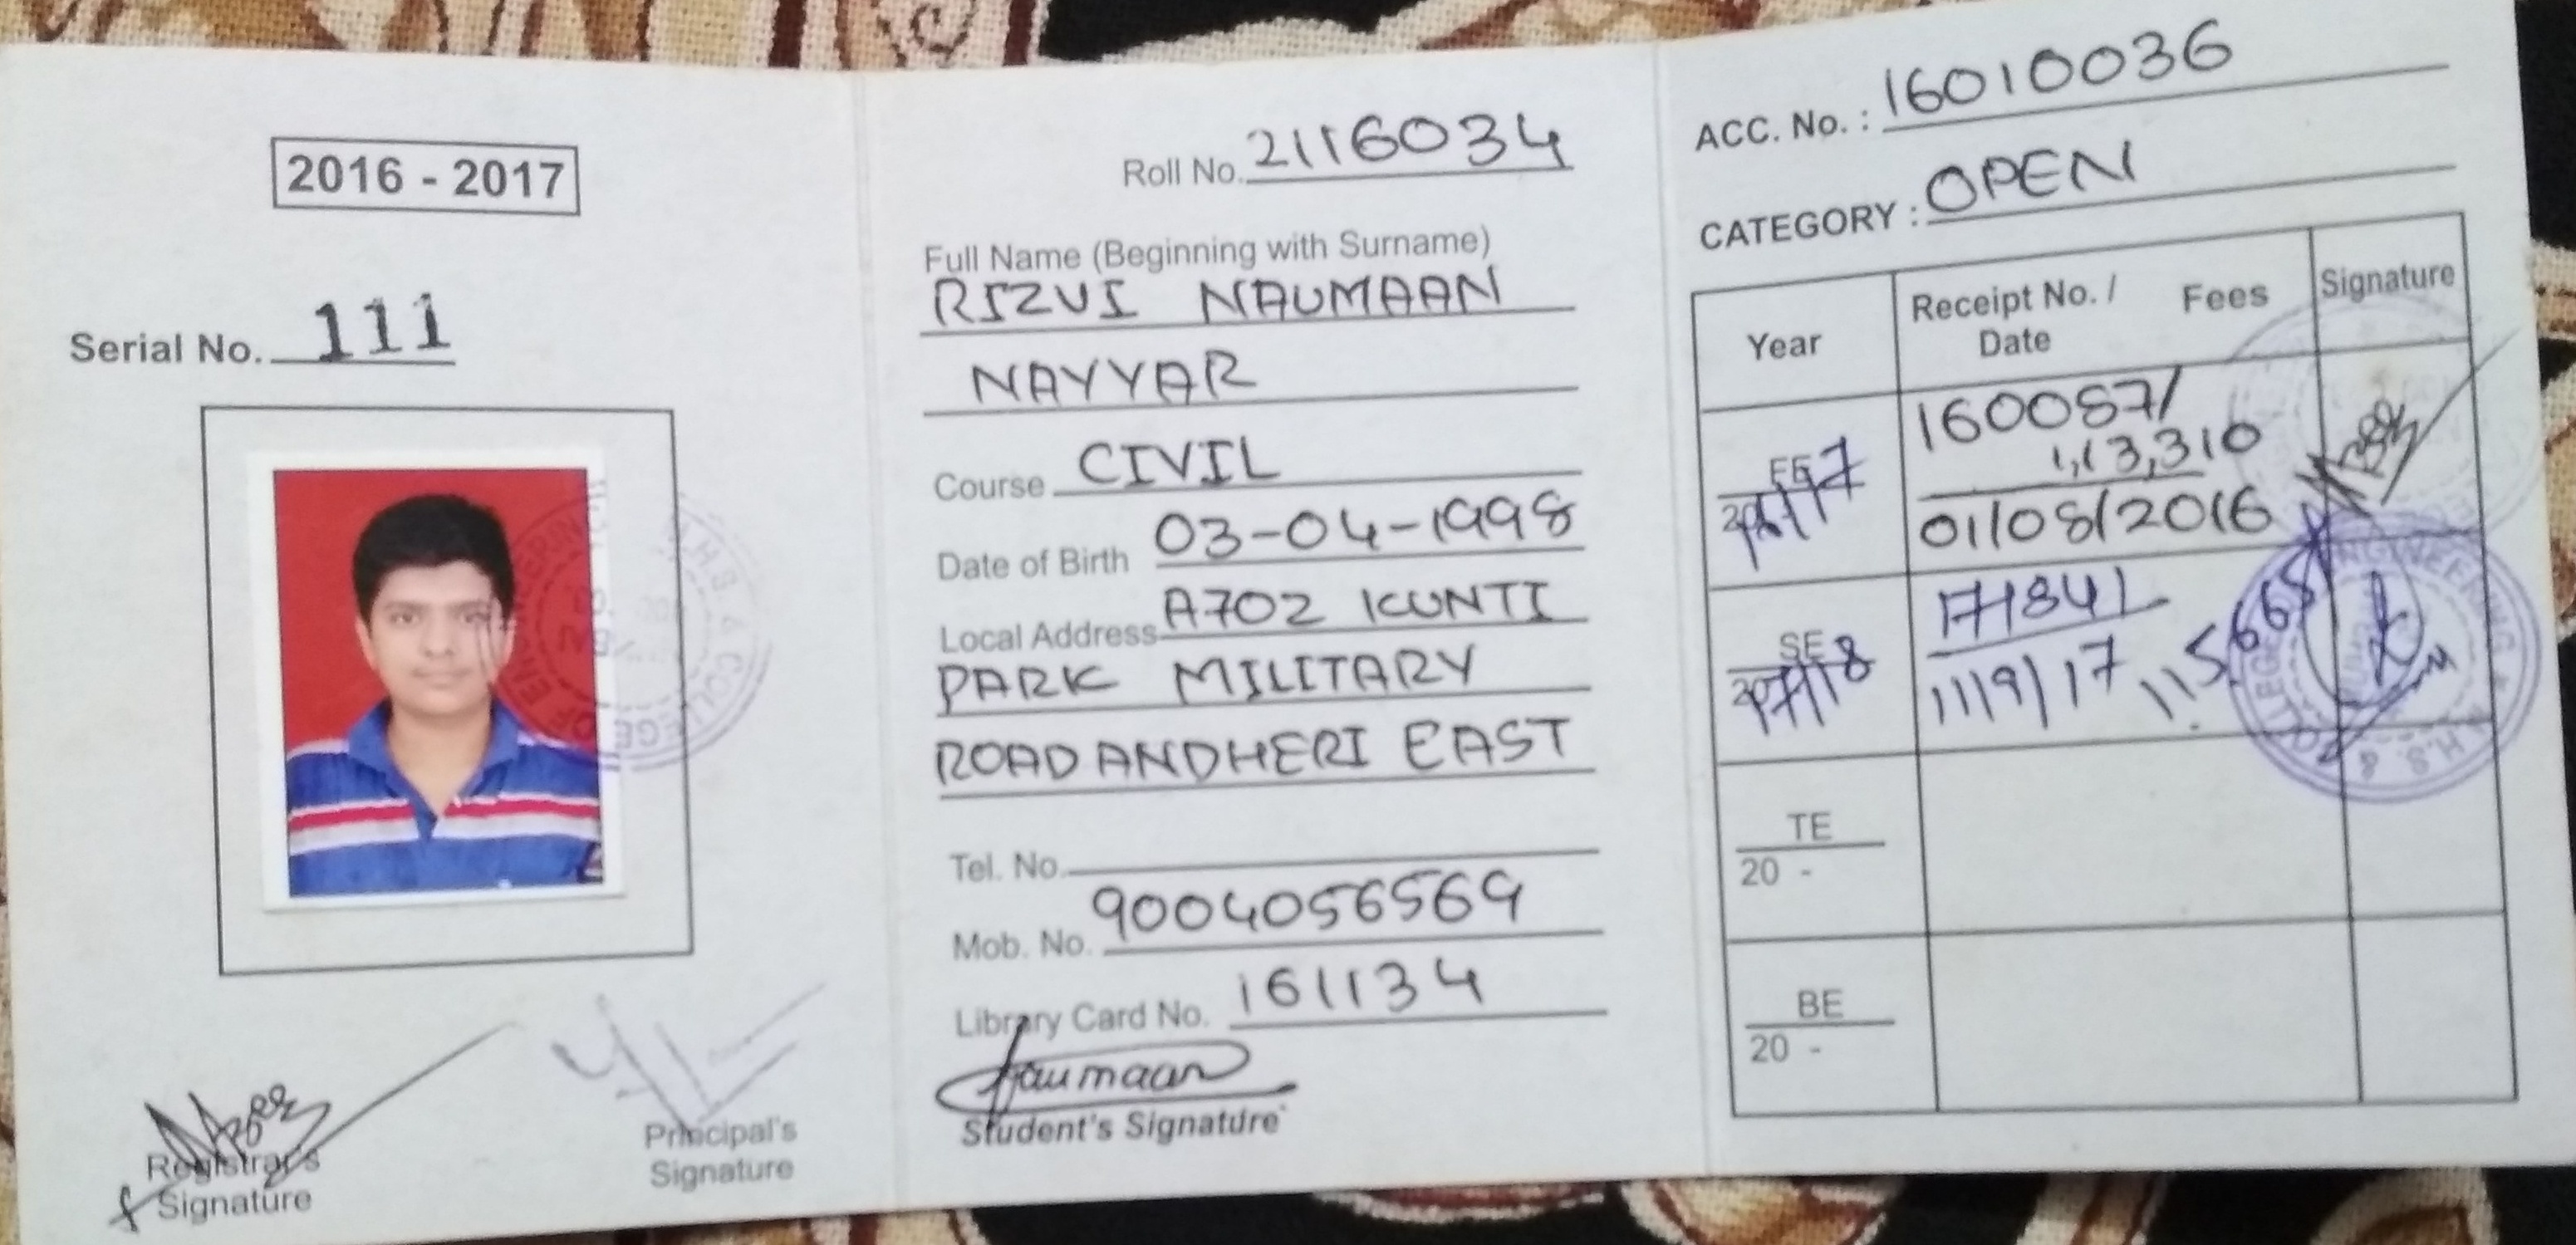 2016 - 2017
Serial No. 111
Registrar's
Signature
Principal's
Signature
Roll No. 2116034
Full Name (Beginning with Surname)
RIZVI NAUMAAN
NAYYAR
Course CIVIL
Date of Birth 03-04-1998
Local Address A702 KUNTI
PARK MILITARY
ROAD ANDHERI EAST
Tel. No.
Mob. No. 9004056569
Library Card No. 161134
Naumaan
Student's Signature
ACC. No. : 16010036
CATEGORY : OPEN
Year Receipt No. / Date Fees Signature
FE 160087/
1,13,310
01/08/2016
SE 171841
11/9/17
TE
20 -
BE
20 -